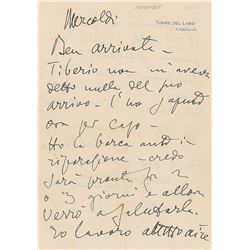 Mercoldì
TORRE DEL LAGO
TOSCANA
Ben arrivata -
Tiberio non mi aveva
detto nulla del suo
arrivo - l'ho saputo
ora per caso -
Ho la barca auto in
riparazione - credo
sarà pronta fra 2
o 3 giorni e allora
verrò a salutarla.
Io lavoro